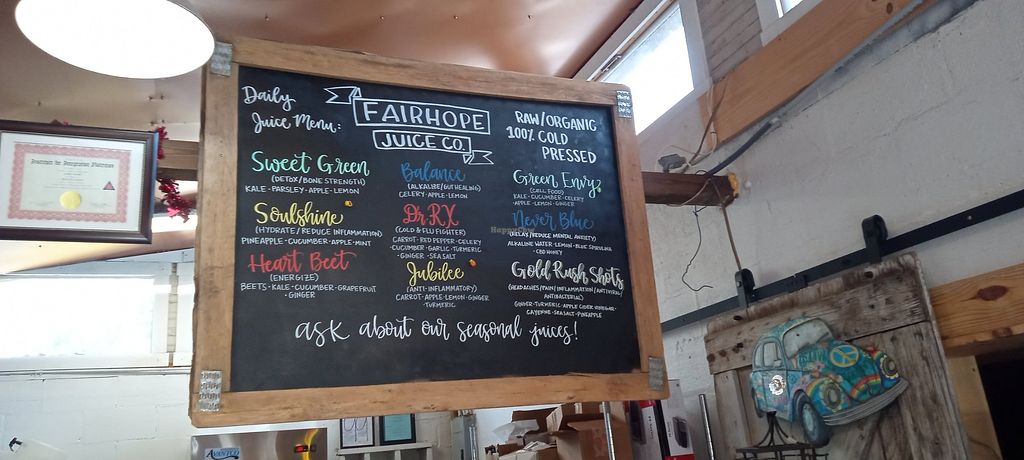 Daily
Juice Menu:
FAIRHOPE
JUICE CO.
RAW/ORGANIC
100% COLD
PRESSED
Sweet Green
(DETOX/BONE STRENGTH)
KALE - PARSLEY - APPLE - LEMON
Soulshine
(HYDRATE/REDUCE INFLAMMATION)
PINEAPPLE - CUCUMBER - APPLE - MINT
Heart Beet
(ENERGIZE)
BEETS - KALE - CUCUMBER - GRAPEFRUIT
- GINGER
Balance
(ALKALIZE/GUT HEALING)
CELERY - APPLE - LEMON
Dr. RX
(COLD & FLU FIGHTER)
CARROT - RED PEPPER - CELERY
- CUCUMBER - GARLIC - TURMERIC
- GINGER - SEA SALT
Jubilee
(ANTI-INFLAMMATORY)
CARROT - APPLE - LEMON - GINGER
TURMERIC
Green Envy
(CELL FOOD)
KALE - CUCUMBER - CELERY
APPLE - LEMON - GINGER
Never Blue
(RELAX/REDUCE MENTAL ANXIETY)
ALKALINE WATER - LEMON - BLUE SPIRULINA
- CBD HONEY
Gold Rush Shots
(HEADACHES/PAIN/INFLAMMATION/ANTIVIRAL/
ANTIBACTERIAL)
GINGER - TURMERIC - APPLE CIDER VINEGAR -
CAYENNE - SEA SALT - PINEAPPLE
ask about our seasonal juices!
Institute for Integrative Nutrition
AVANTCO
HappyCow